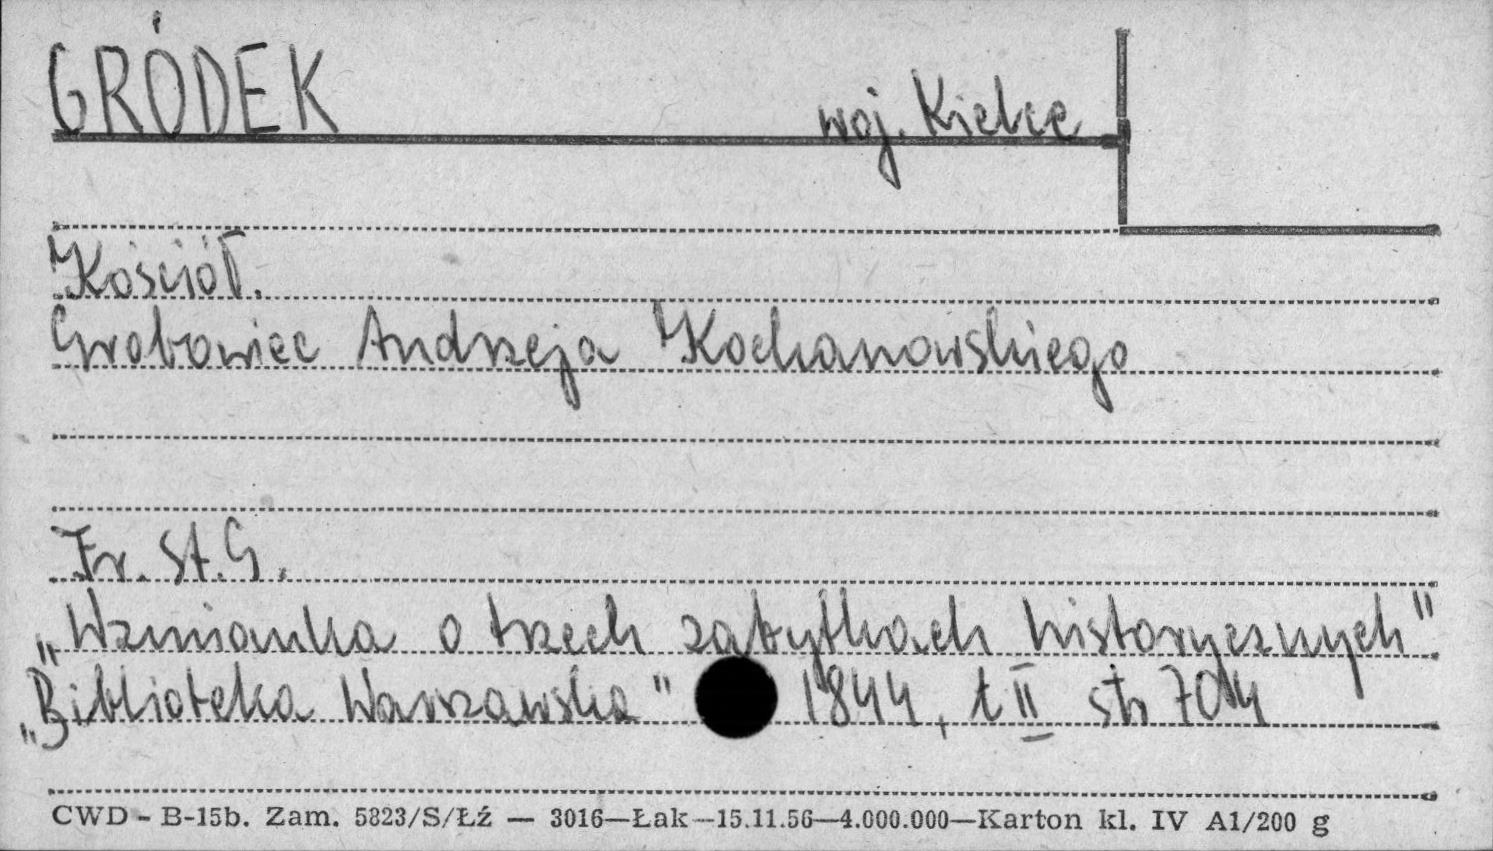 GRÓDEK
woj. Kielce
Kościół.
Grobowiec Andrzeja Kochanowskiego
Fr. St. G.
„Wzmianka o trzech zabytkach historycznych"
„Biblioteka Warszawska" 1844, t II str 704
CWD - B-15b. Zam. 5823/S/Łź — 3016—Łak—15.11.56—4.000.000—Karton kl. IV A1/200 g